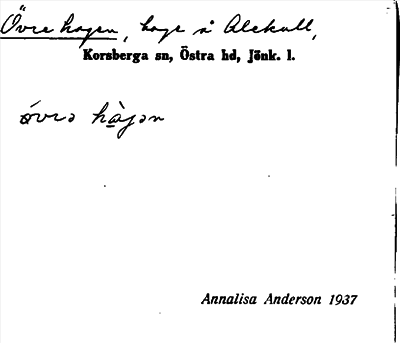 Övre hagen, hage å Alekull,
Korsberga sn, Östra hd, Jönk. l.
óvrə hàgən
Annalisa Anderson 1937